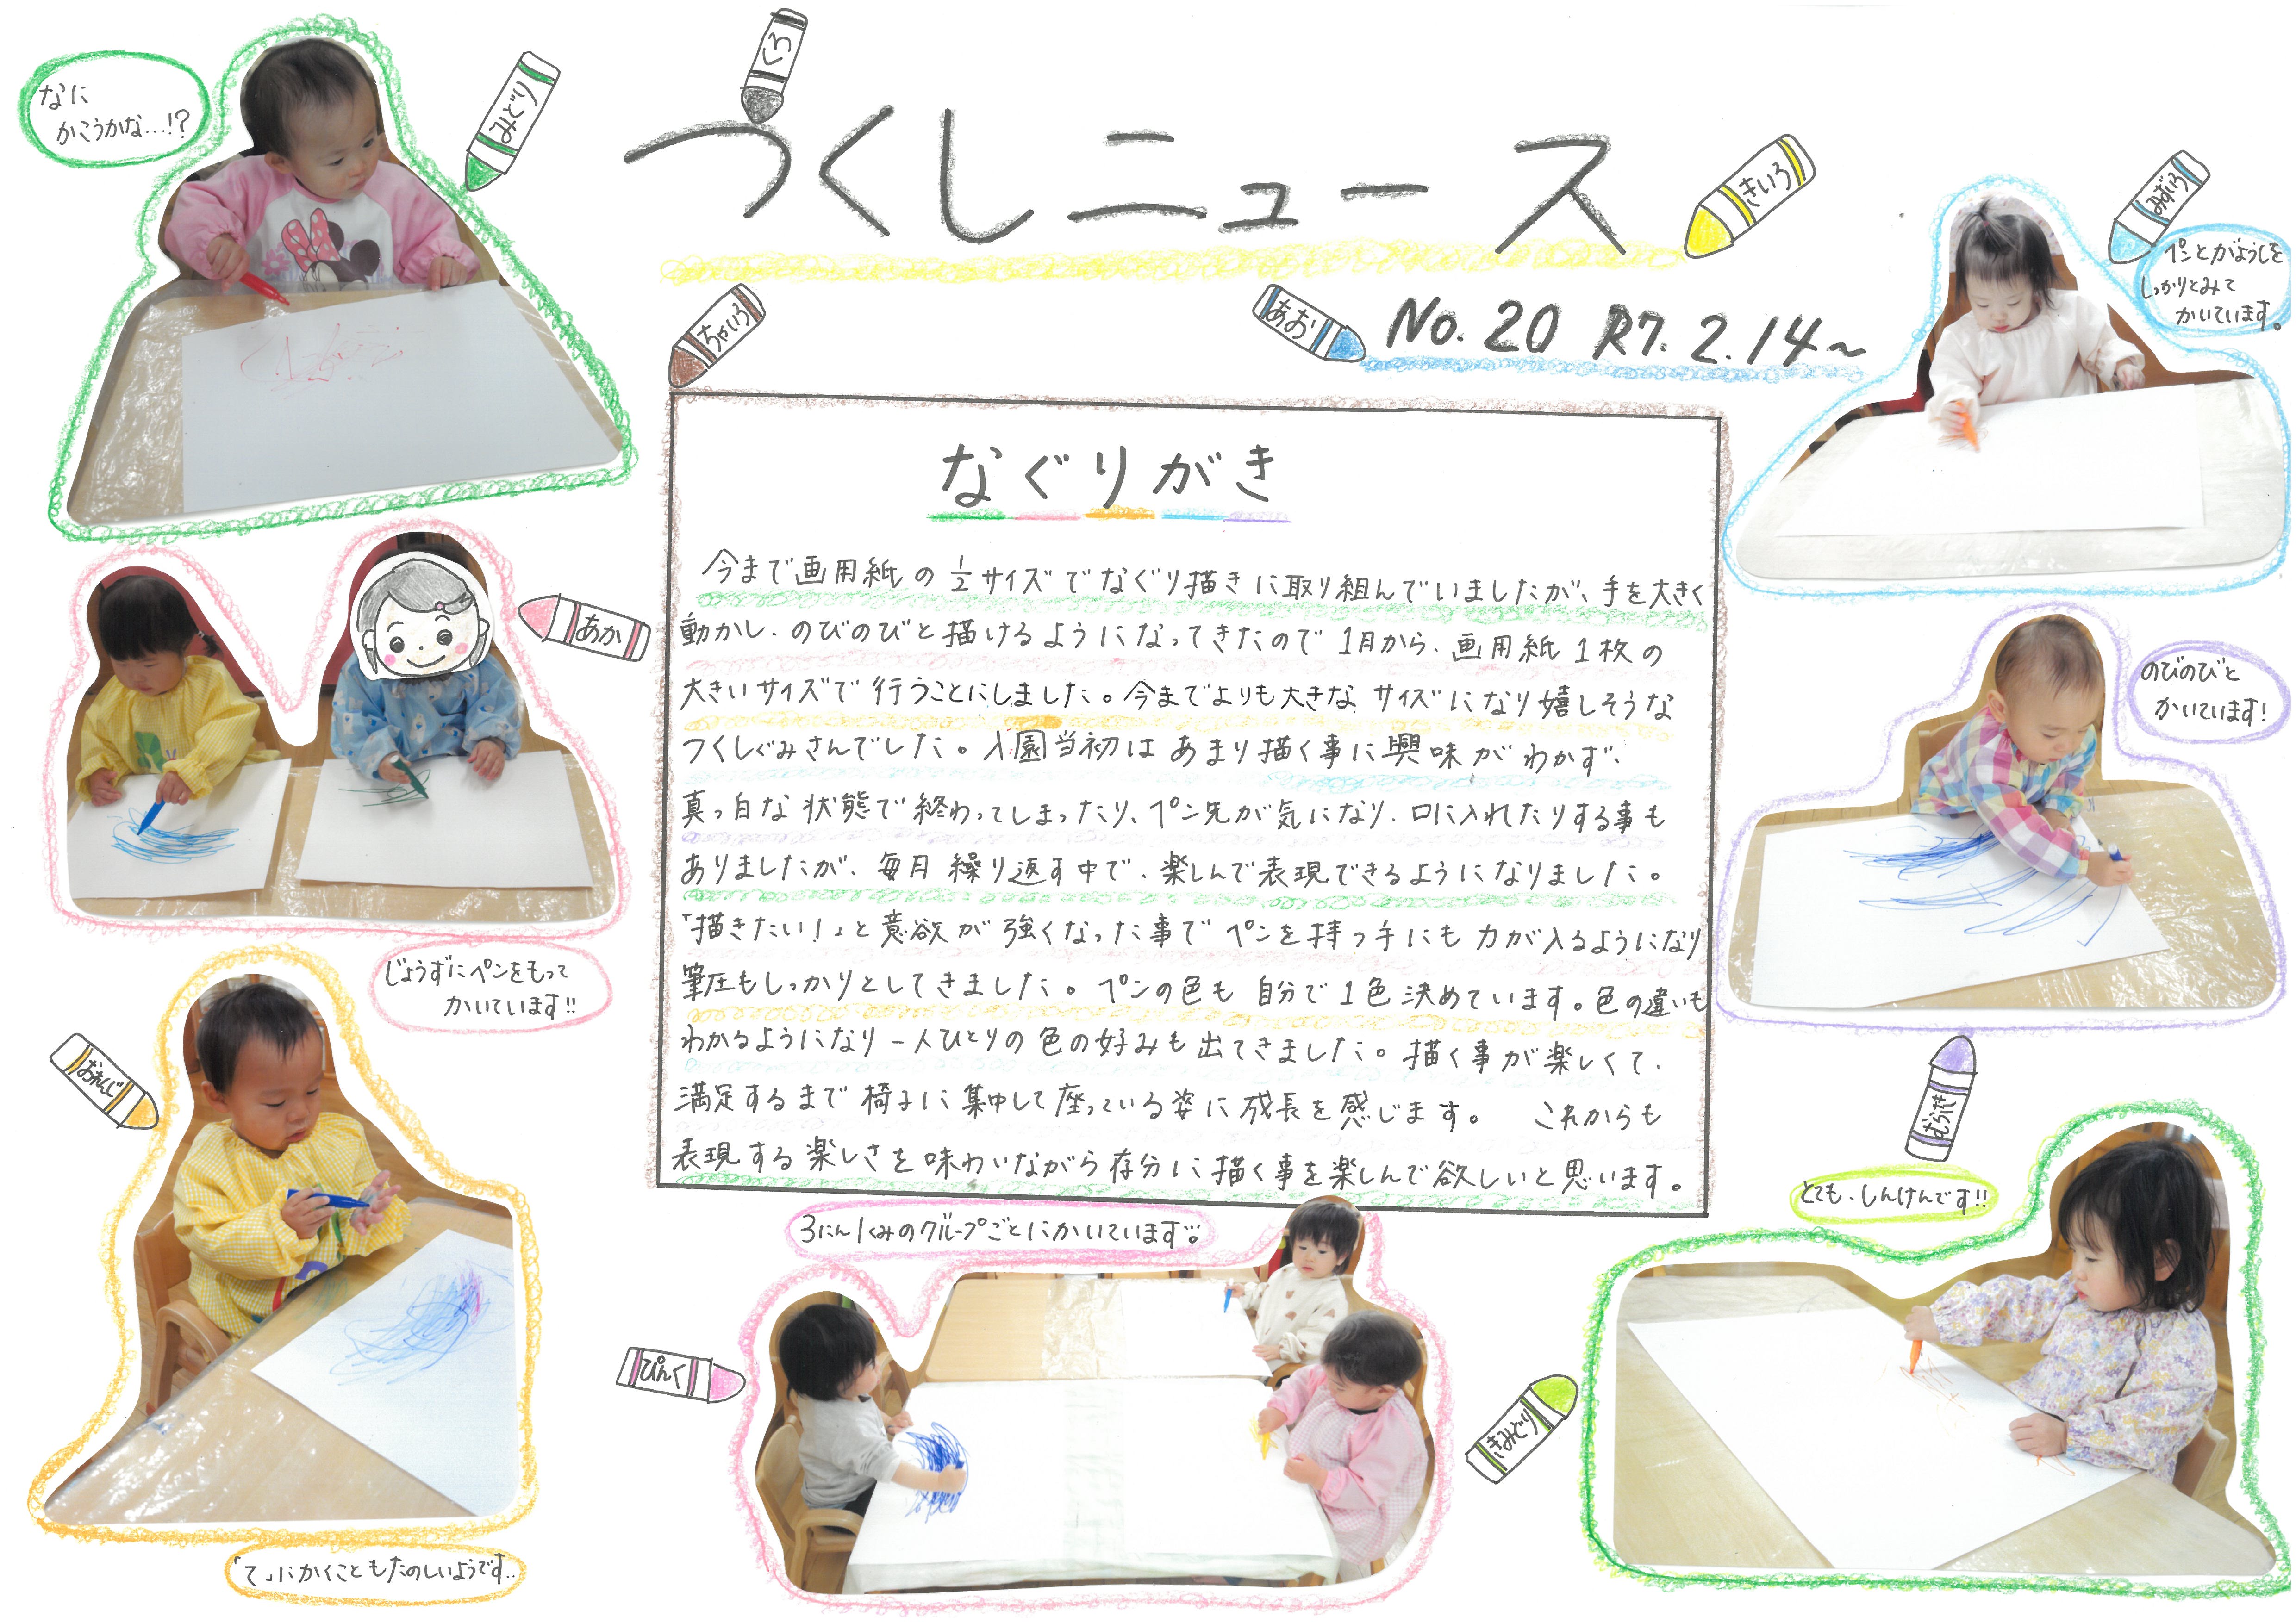 つくしニュース
No.20 R7.2.14～
くろ
みどり
きいろ
みずいろ
ちゃいろ
あお
なに
かこうかな…!?
ペンとがようしを
しっかりとみて
かいています。
なぐりがき
今まで画用紙の1/2サイズでなぐり描きに取り組んでいましたが、手を大きく
動かし、のびのびと描けるようになってきたので1月から、画用紙1枚の
大きいサイズで行うことにしました。今までよりも大きなサイズになり嬉しそうな
つくしぐみさんでした。入園当初はあまり描く事に興味がわかず、
真っ白な状態で終わってしまったり、ペン先が気になり、口に入れたりする事も
ありましたが、毎月繰り返す中で、楽しんで表現できるようになりました。
「描きたい！」と意欲が強くなった事でペンを持つ手にも力が入るようになり
筆圧もしっかりとしてきました。ペンの色も自分で1色決めています。色の違いも
わかるようになり一人ひとりの色の好みも出てきました。描く事が楽しくて、
満足するまで椅子に集中して座っている姿に成長を感じます。　これからも
表現する楽しさを味わいながら存分に描く事を楽しんで欲しいと思います。
あか
じょうずにペンをもって
かいています!!
のびのびと
かいています!
おれんじ
むらさき
「て」にかくこともたのしいようです..
3にん1くみのグループごとにかいています
ぴんく
とても、しんけんです!!
きみどり